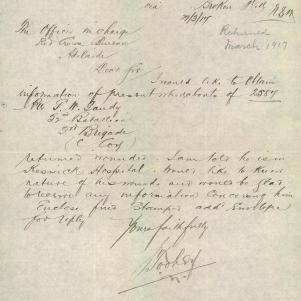 via Broken Hill NSW
21/3/17
Returned
March 1917
The Officer in Charge
Red Cross Bureau
Adelaide
Dear Sir
I would like to obtain
information of present whereabouts of 2587
P. W.
Battalion
Brigade
C Coy
returned wounded. I am told he is in
Keswick Hospital. Would like to know
nature of his wounds and would be glad
to receive any information concerning him
Enclose find Stamped add. Envelope
for reply
Yours faithfully